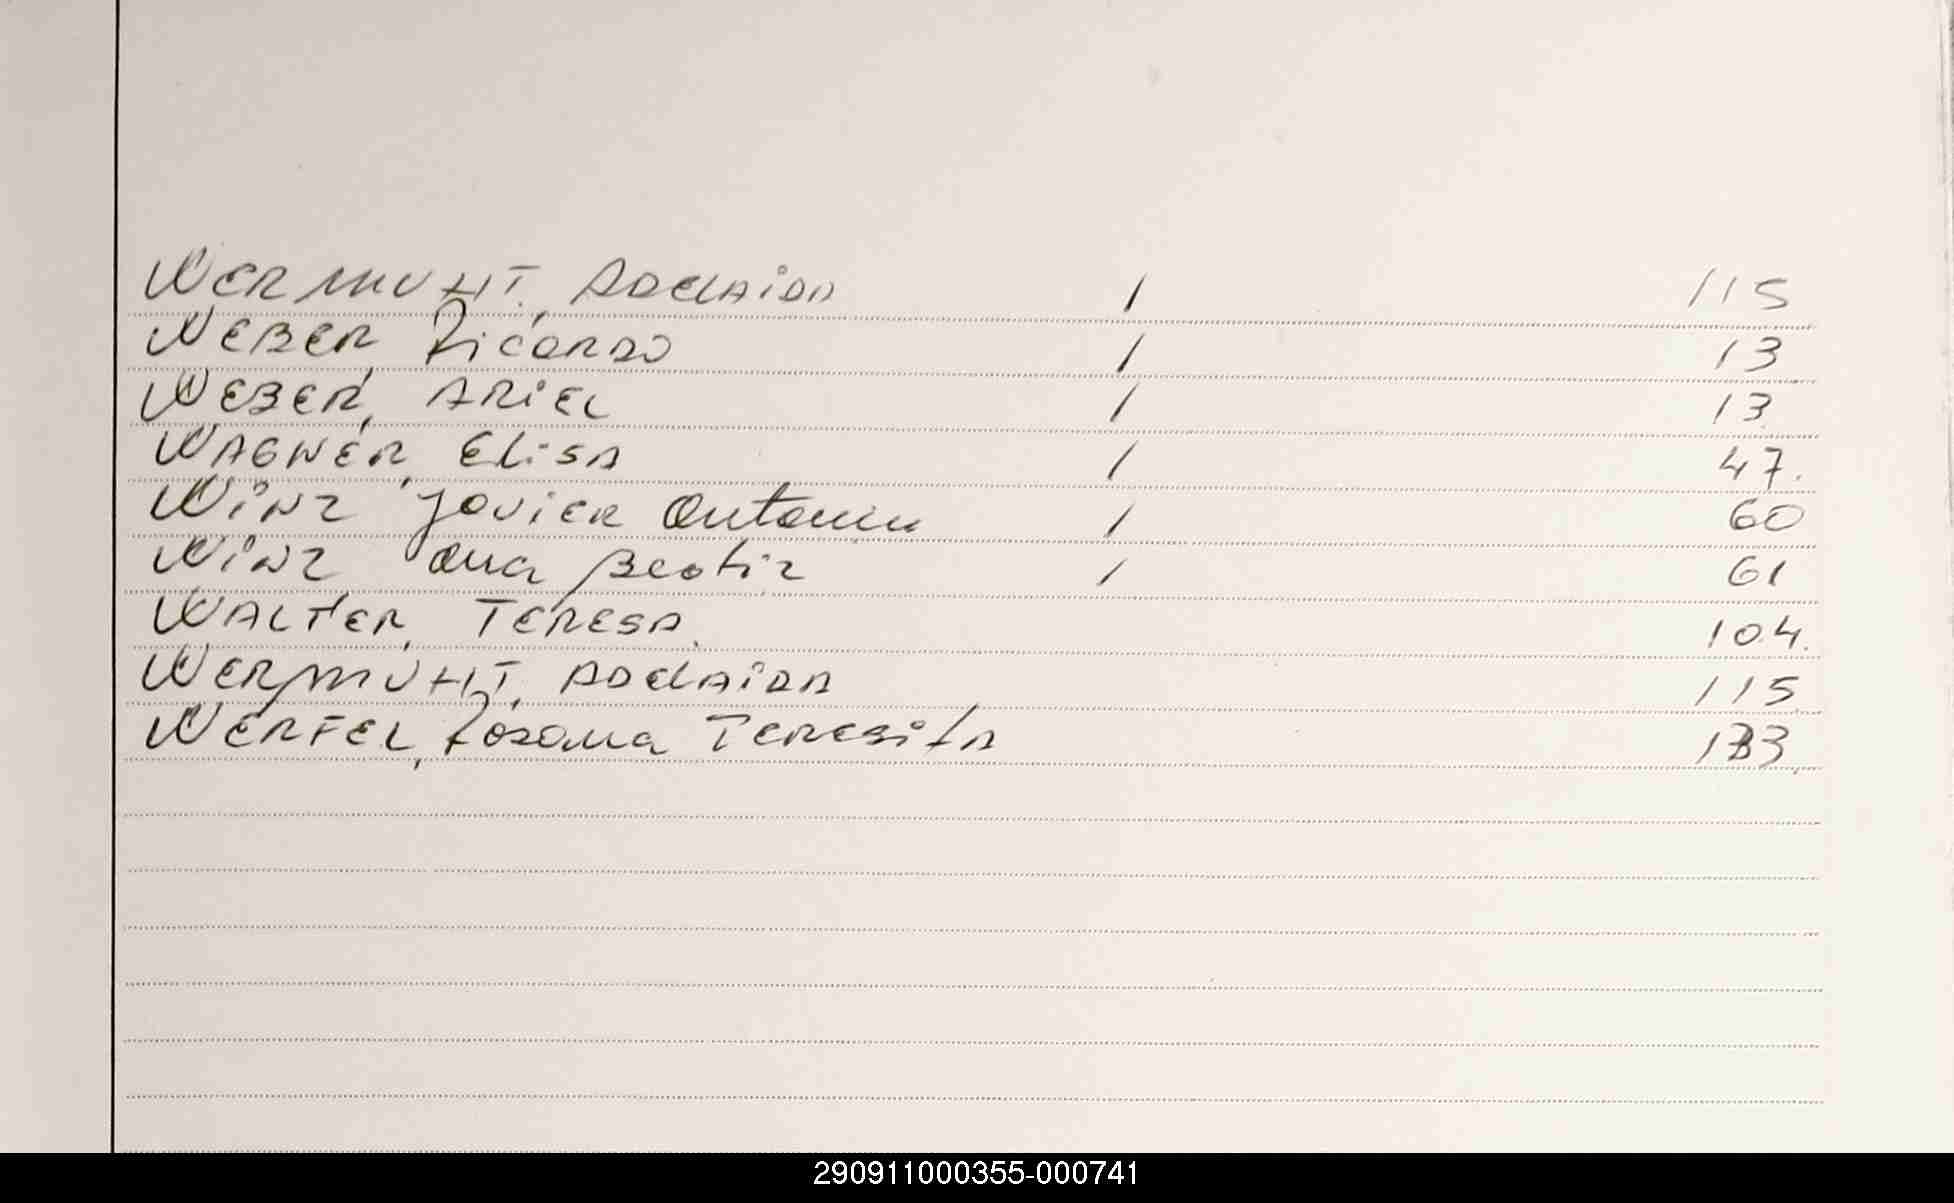 WERMUHT, ADELAIDA / 115
WEBER, Ricardo / 13
WEBER, ARIEL / 13
WAGNER, Elisa / 47.
WiNZ, Javier Antonio / 60
WiNZ Ana Beatriz / 61
WALTER, TERESA. 104.
WERMUHT, ADELAIDA 115
WERFEL, Rosana TERESITA
290911000355-000741